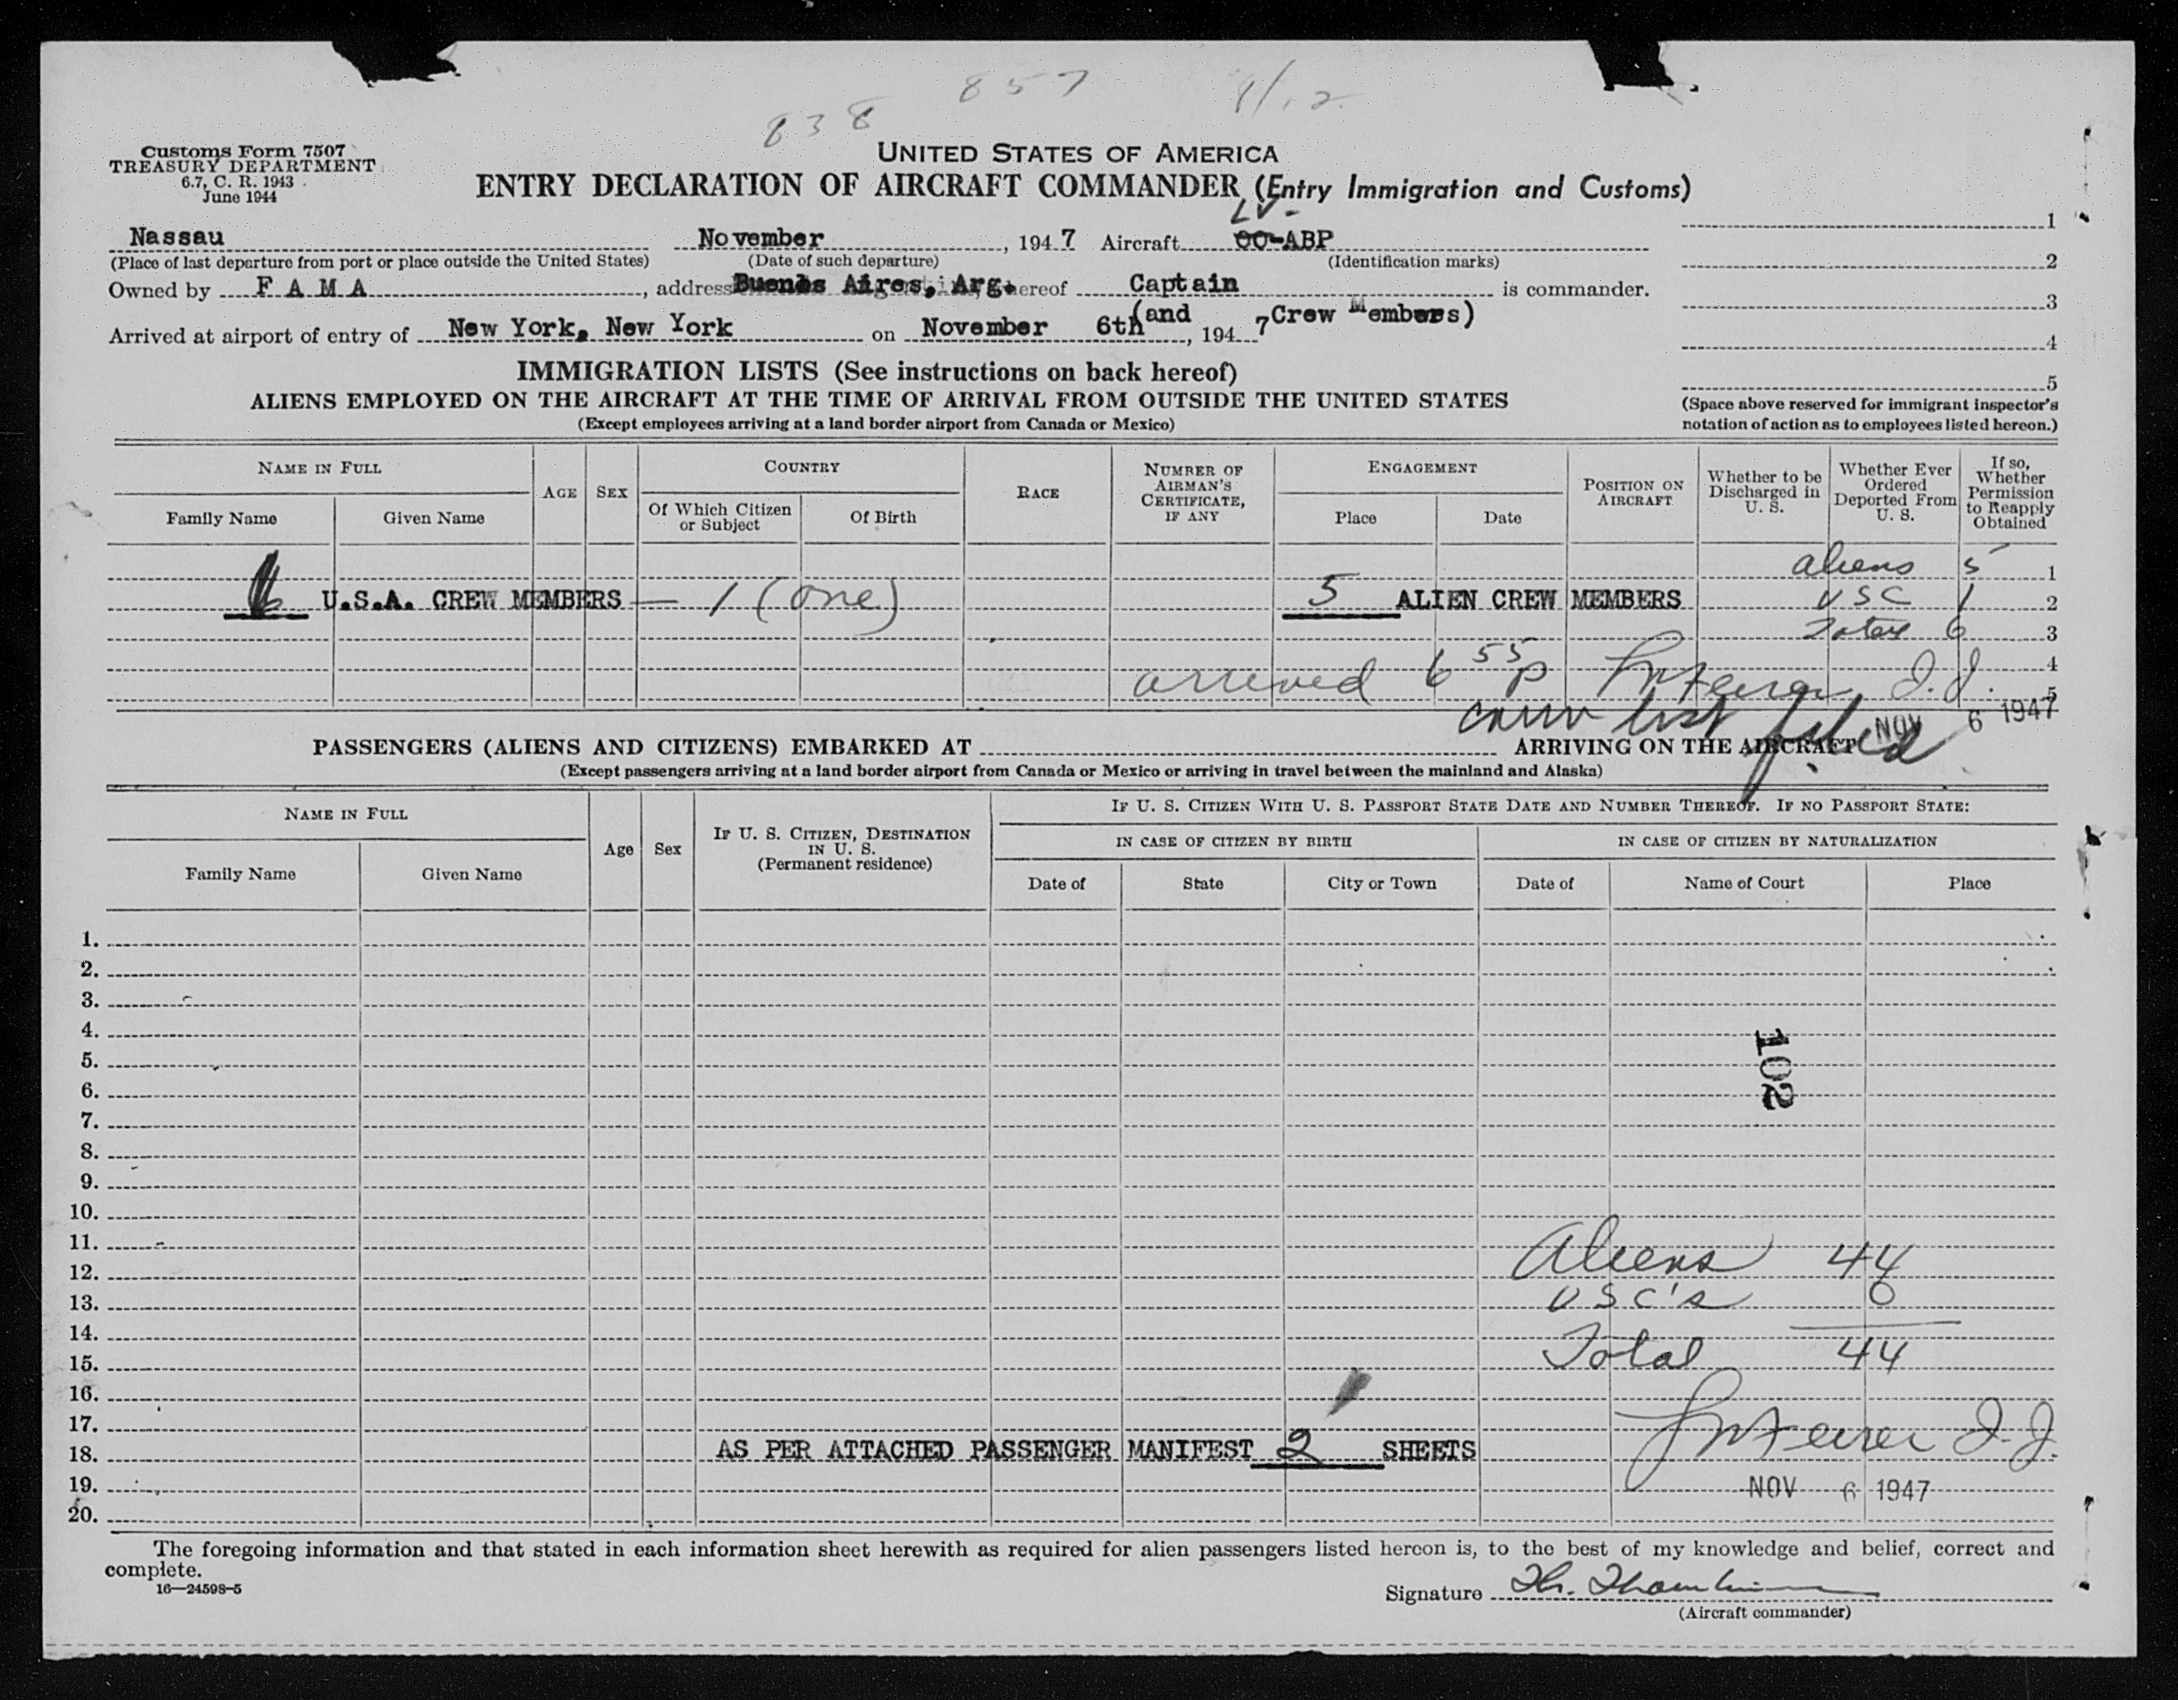 838 857 1/12
Customs Form 7507
TREASURY DEPARTMENT
6.7, C. R. 1943
June 1944
UNITED STATES OF AMERICA
ENTRY DECLARATION OF AIRCRAFT COMMANDER (Entry Immigration and Customs)
LV-
Nassau November, 1947 Aircraft OO-ABP
(Place of last departure from port or place outside the United States) (Date of such departure) (Identification marks)
Owned by F A M A, address Buenos Aires, Arg. hereof Captain is commander.
(and Crew Members)
Arrived at airport of entry of New York, New York on November 6th, 1947
1
2
3
4
5
(Space above reserved for immigrant inspector's
notation of action as to employees listed hereon.)
IMMIGRATION LISTS (See instructions on back hereof)
ALIENS EMPLOYED ON THE AIRCRAFT AT THE TIME OF ARRIVAL FROM OUTSIDE THE UNITED STATES
(Except employees arriving at a land border airport from Canada or Mexico)
NAME IN FULL
Family Name Given Name
AGE SEX
COUNTRY
Of Which Citizen or Subject Of Birth
RACE
NUMBER OF AIRMAN'S CERTIFICATE, IF ANY
ENGAGEMENT
Place Date
POSITION ON AIRCRAFT
Whether to be Discharged in U. S.
Whether Ever Ordered Deported From U. S.
If so, Whether Permission to Reapply Obtained
aliens 5 1
U.S.A. CREW MEMBERS — 1 (one) 5 ALIEN CREW MEMBERS USC 1 2
Total 6 3
arrived 6 55 p I.I. 4
5
list filed NOV 6 1947
PASSENGERS (ALIENS AND CITIZENS) EMBARKED AT ARRIVING ON THE AIRCRAFT
(Except passengers arriving at a land border airport from Canada or Mexico or arriving in travel between the mainland and Alaska)
NAME IN FULL
Family Name Given Name
Age Sex
IF U. S. CITIZEN, DESTINATION IN U. S.
(Permanent residence)
IF U. S. CITIZEN WITH U. S. PASSPORT STATE DATE AND NUMBER THEREOF. IF NO PASSPORT STATE:
IN CASE OF CITIZEN BY BIRTH IN CASE OF CITIZEN BY NATURALIZATION
Date of State City or Town Date of Name of Court Place
1.
2.
3.
4.
5.
102
6.
7.
8.
9.
10.
11.
12. Aliens 44
13. USC's 0
14.
15. Total 44
16.
17. I.I.
18. AS PER ATTACHED PASSENGER MANIFEST 2 SHEETS
19. NOV 6 1947
20.
The foregoing information and that stated in each information sheet herewith as required for alien passengers listed hereon is, to the best of my knowledge and belief, correct and
complete.
16—24598-5
Signature
(Aircraft commander)